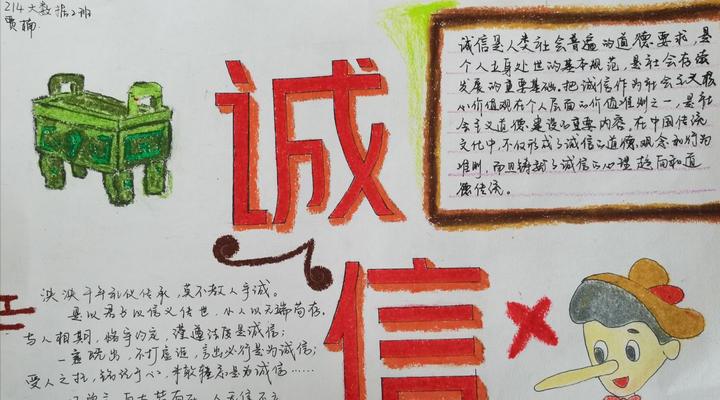 214大数据2班
贾楠
诚
信
诚信是人类社会普遍的道德要求，是
个人立身处世的基本规范，是社会存续
发展的重要基础。把诚信作为社会主义核
心价值观在个人层面的价值准则之一，是社
会主义道德建设的重要内容。在中国传统
文化中，不仅形成了诚信的道德观念和行为
准则，而且铸就了诚信的心理趋向和道
德传统。
泱泱千年礼仪传承，莫不教人乎诚。
是以君子以信义传世，小人以无端苟存。
与人相期，恪守约定，谨遵法度是诚信；
一言既出，不打虚诳，言出必行是为诚信；
受人之托，铭记于心，未敢轻忘是为诚信……